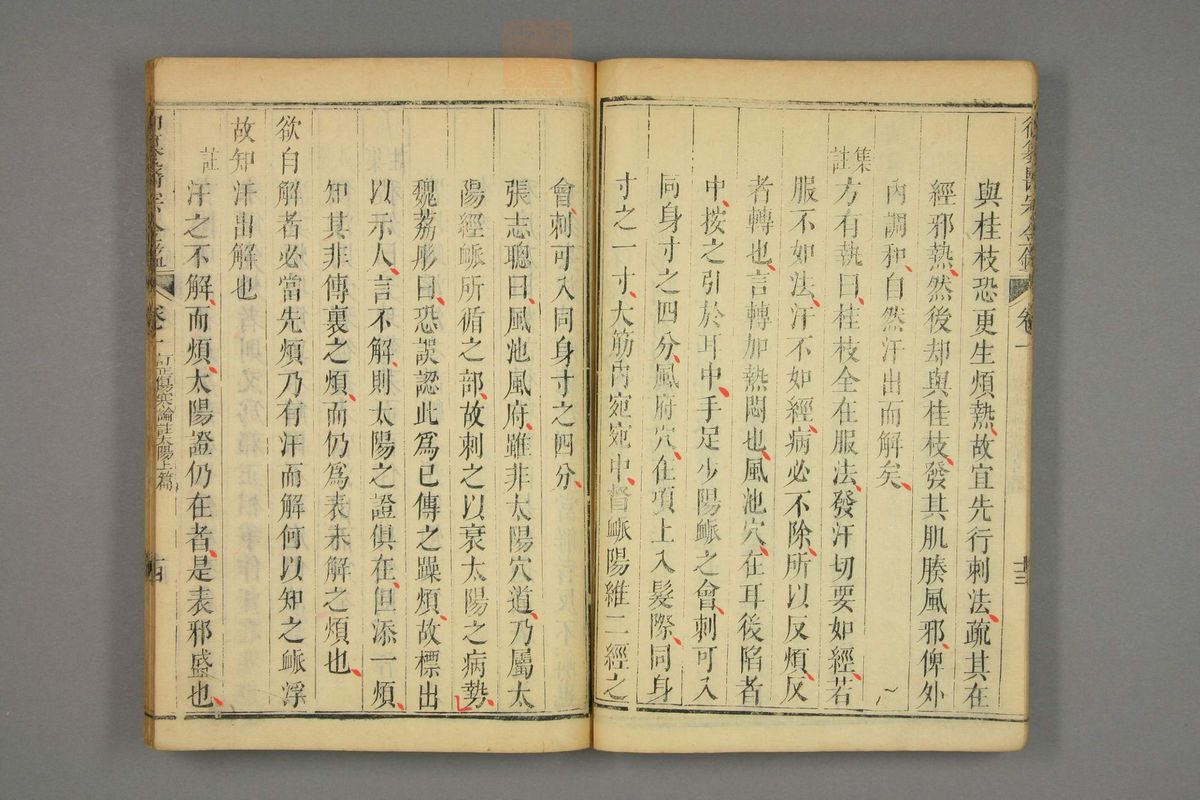 御纂醫宗金鑑
卷一
十三
與桂枝恐更生煩熱故宜先行刺法疏其在
經邪熱然後却與桂枝發其肌腠風邪俾外
內調和自然汗出而解矣
集註
方有執曰桂枝全在服法發汗切要如經若
服不如法汗不如經病必不除所以反煩反
者轉也言轉加熱悶也風池穴在耳後陷者
中按之引於耳中手足少陽衇之會刺可入
同身寸之四分風府穴在項上入髮際同身
寸之一寸大筋內宛宛中督衇陽維二經之
會刺可入同身寸之四分
張志聰曰風池風府雖非太陽穴道乃屬太
陽經衇所循之部故刺之以衰太陽之病勢
魏荔彤曰恐誤認此爲已傳之躁煩故標出
以示人言不解則太陽之證俱在但添一煩
知其非傳裏之煩而仍爲表未解之煩也
欲自解者必當先煩乃有汗而解何以知之衇浮
故知汗出解也
註
汗之不解而煩太陽證仍在者是表邪盛也
御纂醫宗金鑑
卷一
訂正傷寒論註太陽上篇
十四